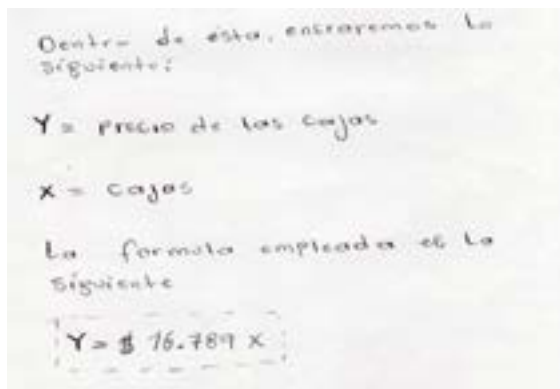 Dentro de esta, entraremos lo
siguiente:
Y = precio de las cajas
X = cajas
La formula empleada es la
siguiente
Y = $ 16.789 X